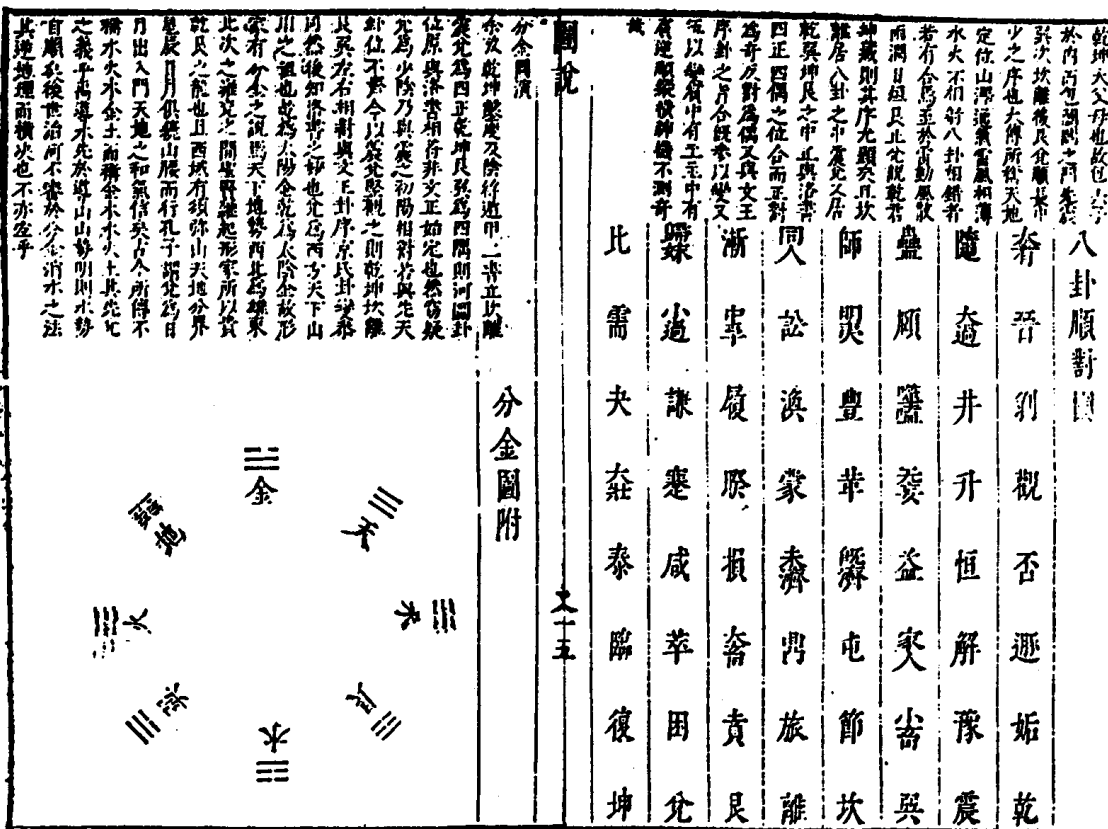 八卦順對圖
乾坤大父母也故包六子
於內而包闔闢之門
巽次坎離後艮兌順長中
少之序也大傳所從天地
定位山澤通氣雷風相薄
水火不相射八卦相錯者
若有合焉至於雷動風散
雨潤日烜艮止兌說乾君
坤藏則其序尤顯矣且坎
離居八卦之中震兌又居
乾巽坤艮之中正與洛書
四正四偶之位合而正對
為奇反對為偶又與文王
序卦之旨合錯參以變又
伍以變 中有五五中有
逆順縱橫神機不測奇
哉
大有 晉 剝 觀 否 遯 姤 乾
隨 大過 井 升 恒 解 豫 震
蠱 頤 噬嗑 无妄 益 家人 小畜 巽
師 明夷 豐 革 既濟 屯 節 坎
同人 訟 渙 蒙 未濟 鼎 旅 離
漸 中孚 履 睽 損 大畜 賁 艮
歸妹 小過 謙 蹇 咸 萃 困 兌
比 需 夬 大壯 泰 臨 復 坤
圖說
文十五
分金圖演
余攷乾坤鑿度及陰符遁甲二書立坎離
震兌爲四正乾坤艮巽爲四隅則河圖卦
位原與洛書相符非文王始定也然竊疑
兌爲少陰乃與震之初陽相對若與先天
卦位不 今以震兌竪觀之則乾坤坎離
艮巽左右相對與文王卦序京氏卦變泰
同然後知作者之妙也兌居西方天下山
川之祖也乾爲太陽金兌爲太陰金故形
家有分金之說焉天下地勢西北爲雄東
北次之雖兗之間聖賢 起形家所以貴
乾艮之龍也且西域有須弥山天地分界
星辰日月俱繞山腰而行孔子謂兌爲日
月出入門天地之和氣信矣古今所傳不
稱水火木金土而稱金木水火土其先兌
之義乎禹導水先於導山山勢明則水勢
自順矣後世治河不審於分金消水之法
其逆地理而橫決也不亦宜乎
分金圖附
金
天
木
水
火
地